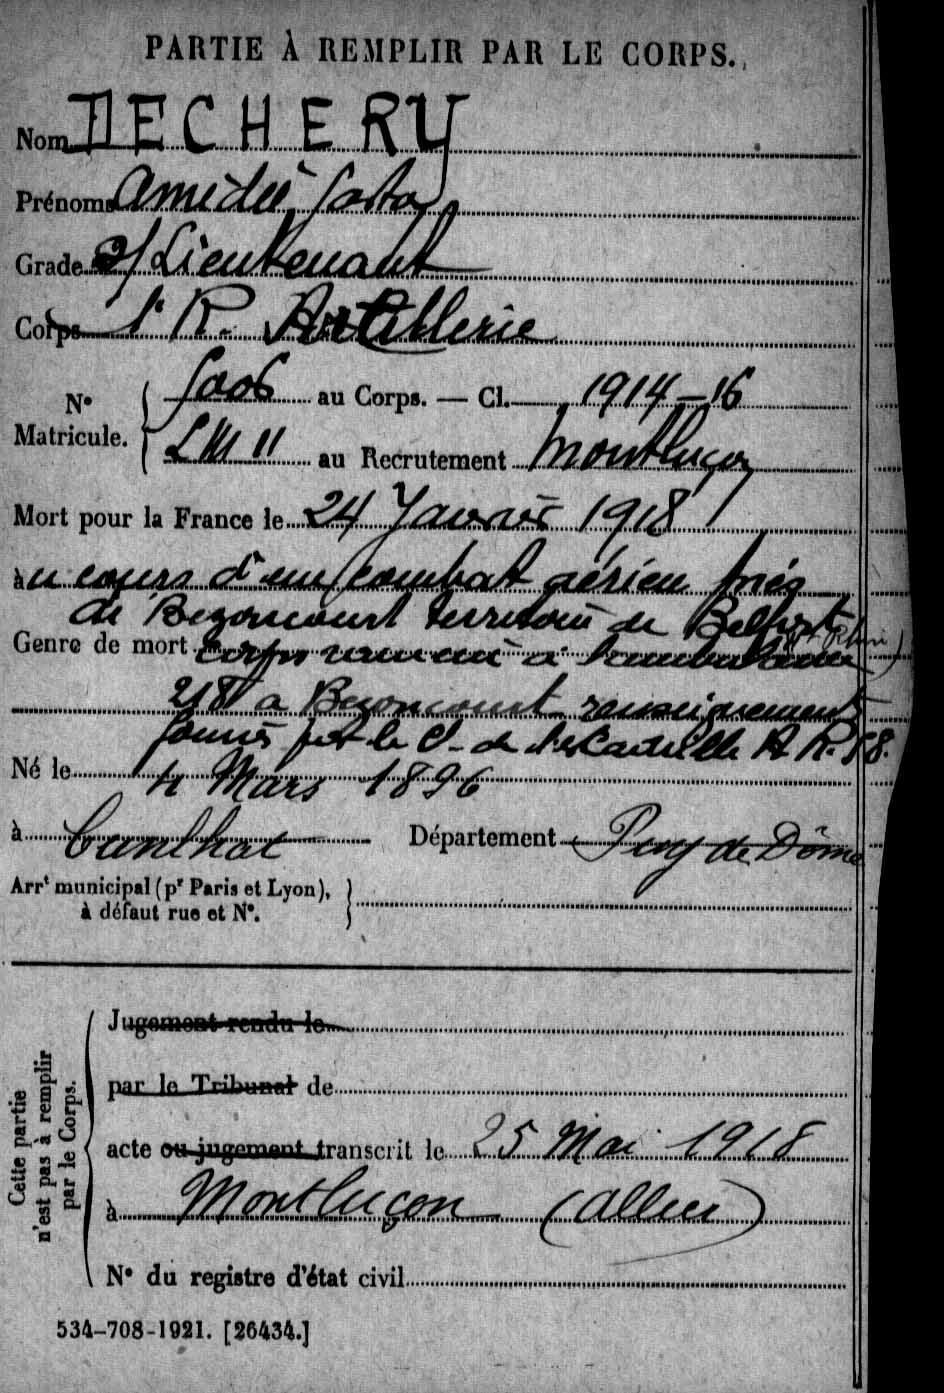 PARTIE À REMPLIR PAR LE CORPS.
Nom DECHERY
Prénoms Amédée
Grade s/Lieutenant
Corps 1er R. Artillerie
N° Matricule. 5006 au Corps. — Cl. 1914-16
LM 11 au Recrutement Montluçon
Mort pour la France le 24 Janvier 1918
à u cours d'un combat aérien près
de Bezoncourt territoire de Belfort
(Ht Rhin)
Genre de mort corps ramené à l'ambulance
218 a Bezoncourt renseignements
fournis par le Ct de l'escadrille A R. 58.
Né le 4 Mars 1896
à Cunlhat Département Puy de Dôme
Arrt municipal (pr Paris et Lyon),
à défaut rue et N°.
Cette partie
n'est pas à remplir
par le Corps.
Jugement rendu le
par le Tribunal de
acte ou jugement transcrit le 25 Mai 1918
à Montluçon (Allier)
N° du registre d'état civil
534-708-1921. [26434.]